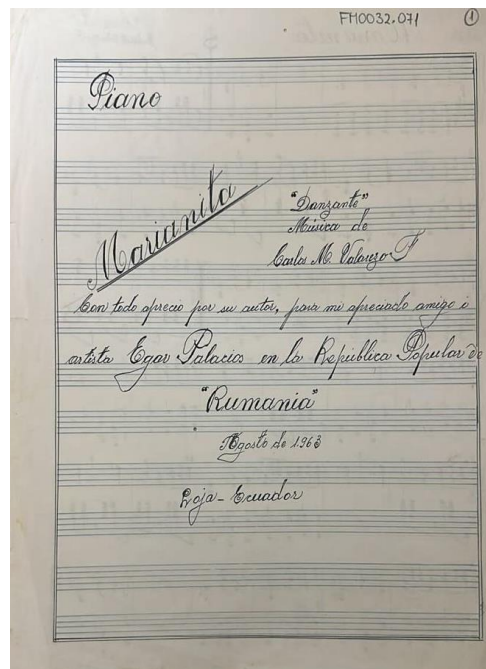 FM0032.071 1
Piano
Marianita
"Danzante"
Música de
Carlos M. Valarezo F
Con todo aprecio por su autor, para mi apreciado amigo i
artista Egar Palacios en la República Popular de
"Rumania"
Agosto de 1963
Loja - Ecuador